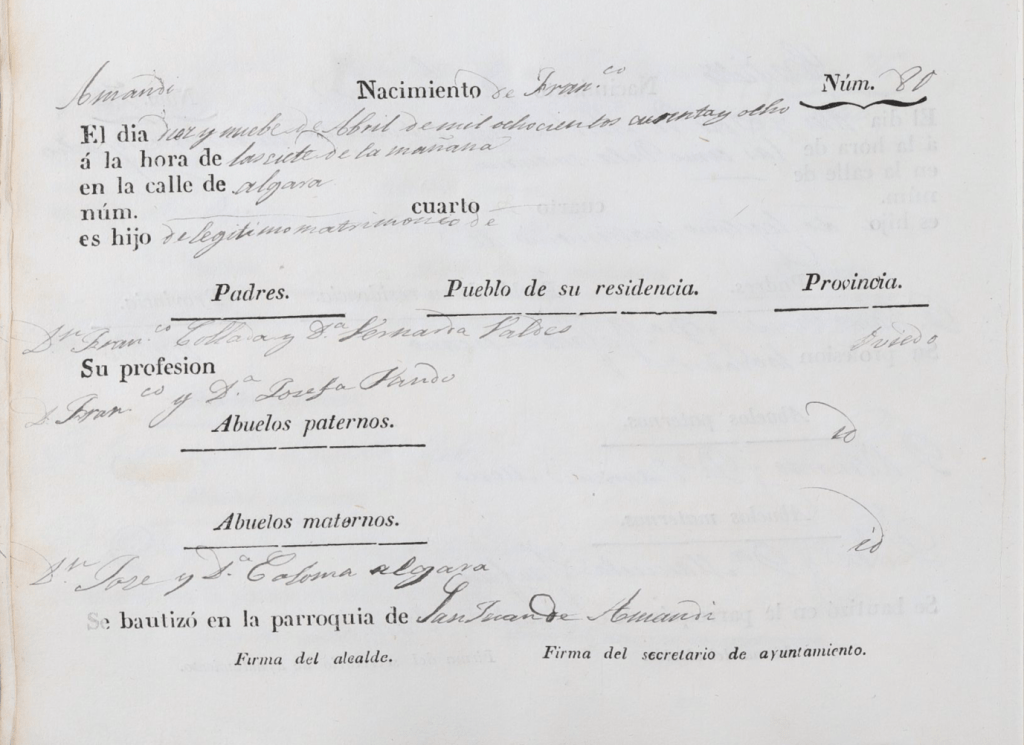 Amandi Nacimiento de Fran.co Núm. 80
El dia diez y nuebe de Abril de mil ochocientos cuarenta y ocho
á la hora de las siete de la mañana
en la calle de algara
núm. cuarto
es hijo de legitimo matrimonio de
Padres. Pueblo de su residencia. Provincia.
Dn Fran.co Collada y D.a Vernarda Valdes Oviedo
Su profesion
D Fran.co y D.a Josefa Pando
Abuelos paternos. id
Abuelos maternos. id
Dn Jose y D.a Coloma algara
Se bautizó en la parroquia de San Juan de Amandi
Firma del alcalde. Firma del secretario de ayuntamiento.